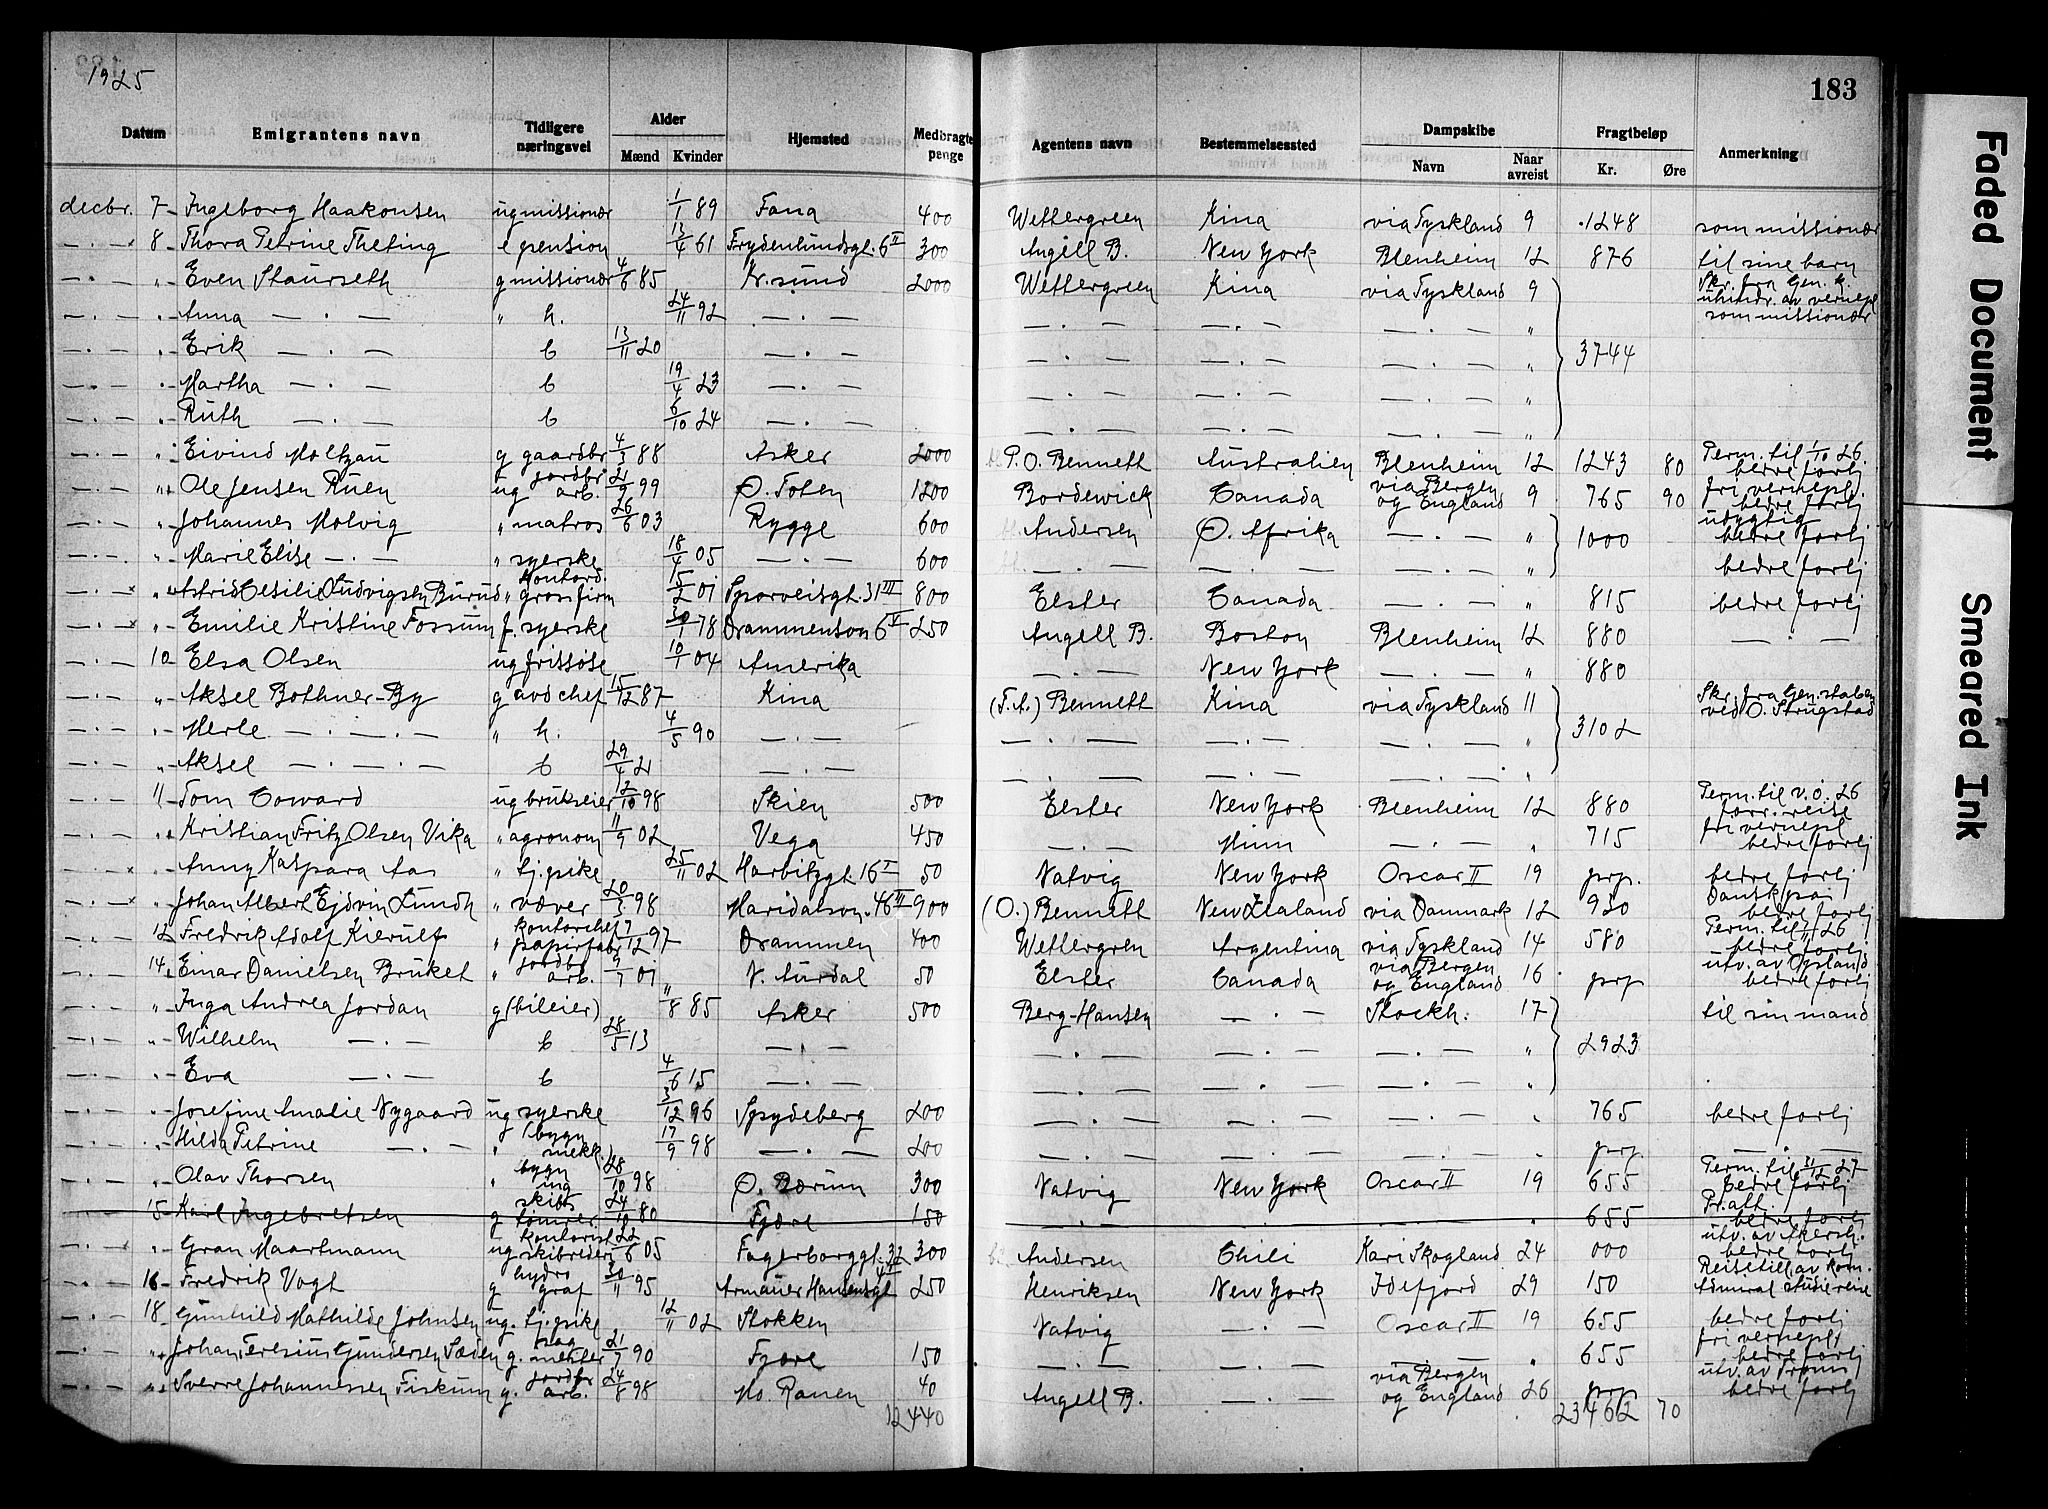 1925
183
Datum Emigrantens navn Tidligere næringsvei Alder Mænd Kvinder Hjemsted Medbragte penge Agentens navn Bestemmelsessted Dampskibe Navn Naar avreist Fragtbeløp Kr. Øre Anmerkning
decbr. 7 Ingeborg Haakonsen ug missionær 1/1 89 Fana 400 Wettergreen Kina via Tyskland 9 1248 som missionær
— · — 8 Thora Petrine Theting e pension 13/4 61 Frydenlundsgt. 6 II 300 Angell B. New York Blenheim 12 876 til sine barn
— · — " Even Staurseth g missionær 4/6 85 Kr.sund 2000 Wettergreen Kina via Tyskland 9 Skr. fra Gen. k. uhindr. av vernepl som missionær
— · — " Anna — · — " h. 24/11 92 — · — — · — — · — — · — "
— · — " Erik — · — b 13/11 20 — · — — · — — · — — · — " 3744
— · — " Martha — · — b 19/4 23 — · — — · — — · — — · — "
— · — " Ruth — · — b 6/10 24 — · — — · — — · — — · — "
— · — " Eivind Moltzau g gaardbr 4/3 88 Asker 2000 P.O. Bennett Australien Blenheim 12 1243 80 Perm. til 1/10 26. bedre forlj
— · — " Ole Jensen Ruen ug jordbr arb. 21/9 99 Ø. Toten 1200 Bordewick Canada via Bergen og England 9 765 90 fri vernepl. bedre forlj
— · — " Johannes Molvig " matros 26/6 03 Rygge 600 Andersen Ø. Afrika — · — " 1000 udygtig bedre forlj
— · — " Marie Elise — · — " syerske 18/4 05 — · — 600 — · — — · — — · — " bedre forlj
— · — × " Astrid Cesilie Ludvigsen Burud " kontord. gros firm 15/2 01 Sporveisgt. 31 III 800 Elster Canada — · — " 815 bedre forlj
— · — × " Emilie Kristine Fossum f. syerske 30/1 78 Drammensvn 6 V 250 Angell B. Boston Blenheim 12 880 — · —
— · — 10 Elsa Olsen ug frissøse 10/1 04 Amerika — · — New York — · — " 880
— · — " Aksel Bothner-By g avd chef 15/12 87 Kina (F.A.) Bennett Kina via Tyskland 11 Skr. fra Gen. staben ved O. Strugstad
— · — " Merle — · — · — " h. 4/5 90 — · — — · — — · — — · — " 3102
— · — " Aksel — · — · — b 29/4 21 — · — — · — — · — — · — "
— · — 11 Tom Coward ug brukseier 12/10 98 Skien 500 Elster New York Blenheim 12 880 Perm. til v. o. 26 forr. reise
— · — " Kristian Fritz Olsen Vika " agronom 11/9 02 Vega 450 — · — Minn — · — " 715 fri vernepl bedre forlj
— · — × " Anny Kaspara Aas " tj. pike 25/11 02 Harbitzgt. 16 I 50 Natvig New York Oscar II 19 prp. bedre forlj
— · — × " Johan Albert Ejdvin Lundh " væver 20/3 98 Maridalsvn. 46 III 900 (O.) Bennett New Zealand via Danmark 12 920 Dansk pas bedre forlj
— · — 12 Fredrik Adolf Kierulf " kontorchef papirfabr 7/12 97 Drammen 400 Wettergren Argentina via Tyskland 14 580 Perm. til 26 bedre forlj
— · — 14 Einar Danielsen Bruket " jordbr arb. 01 N. Aurdal 50 Elster Canada via Bergen og England 16 prp utv. av Opland bedre forlj
— · — " Inga Andrea Jordan g (bileier) 11/8 85 Asker 500 Berg-Hansen — · — Stockh. 17 til sin mand
— · — " Wilhelm — · — b 28/5 13 — · — — · — — · — — · — " 2923
— · — " Eva — · — b 4/6 15 — · — — · — — · — — · — "
— · — " Josefine Amalie Nygaard ug syerske 3/12 96 Spydeberg 200 — · — — · — — · — " 765 bedre forlj
— · — " Hilda Petrine — · — " 17/9 98 — · — 200 — · — — · — — · — " prp — · —
— · — " Olav Thorsen " bygn ing 28/10 98 Ø. Bærum 300 Natvig New York Oscar II 19 655 Perm. til 31/12 27 bedre forlj
— · — 15 Karl Ingebretsen g skibs tømrer 24/10 80 Fjære 150 — · — — · — — · — " 655 Pr. att. bedre forlj
— · — × " Gran Maartmann ug kontorist skibrederi 22/6 05 Fagerborggt. 32 300 Andersen Chili Kari Skogland 24 000 utv. av Akersh. bedre forlj
— · — 16 Fredrik Vogt g hydro graf 30/11 95 Armauer Hansensgt 4 II 250 Henriksen New York Idefjord 29 150 Reisetill. av Kom. Admiral studiereise
— · — 18 Gunhild Mathilde Johnsen ug. tj. pike 12/11 02 Stokken Natvig — · — Oscar II 19 655 bedre forlj
— · — " Johan Teresius Gundersen Sæden g. sag mester 21/7 90 Fjære 150 — · — — · — — · — " 655 fri vernepl. bedre forlj
— · — " Sverre Johannessen Fiskum g. jordbr arb. 24/8 98 Mo. Ranen 40 Angell B. — · — via Bergen og England 26 prp utv. av Troms bedre forlj
12440 23462 70
Faded Document
Smeared Ink